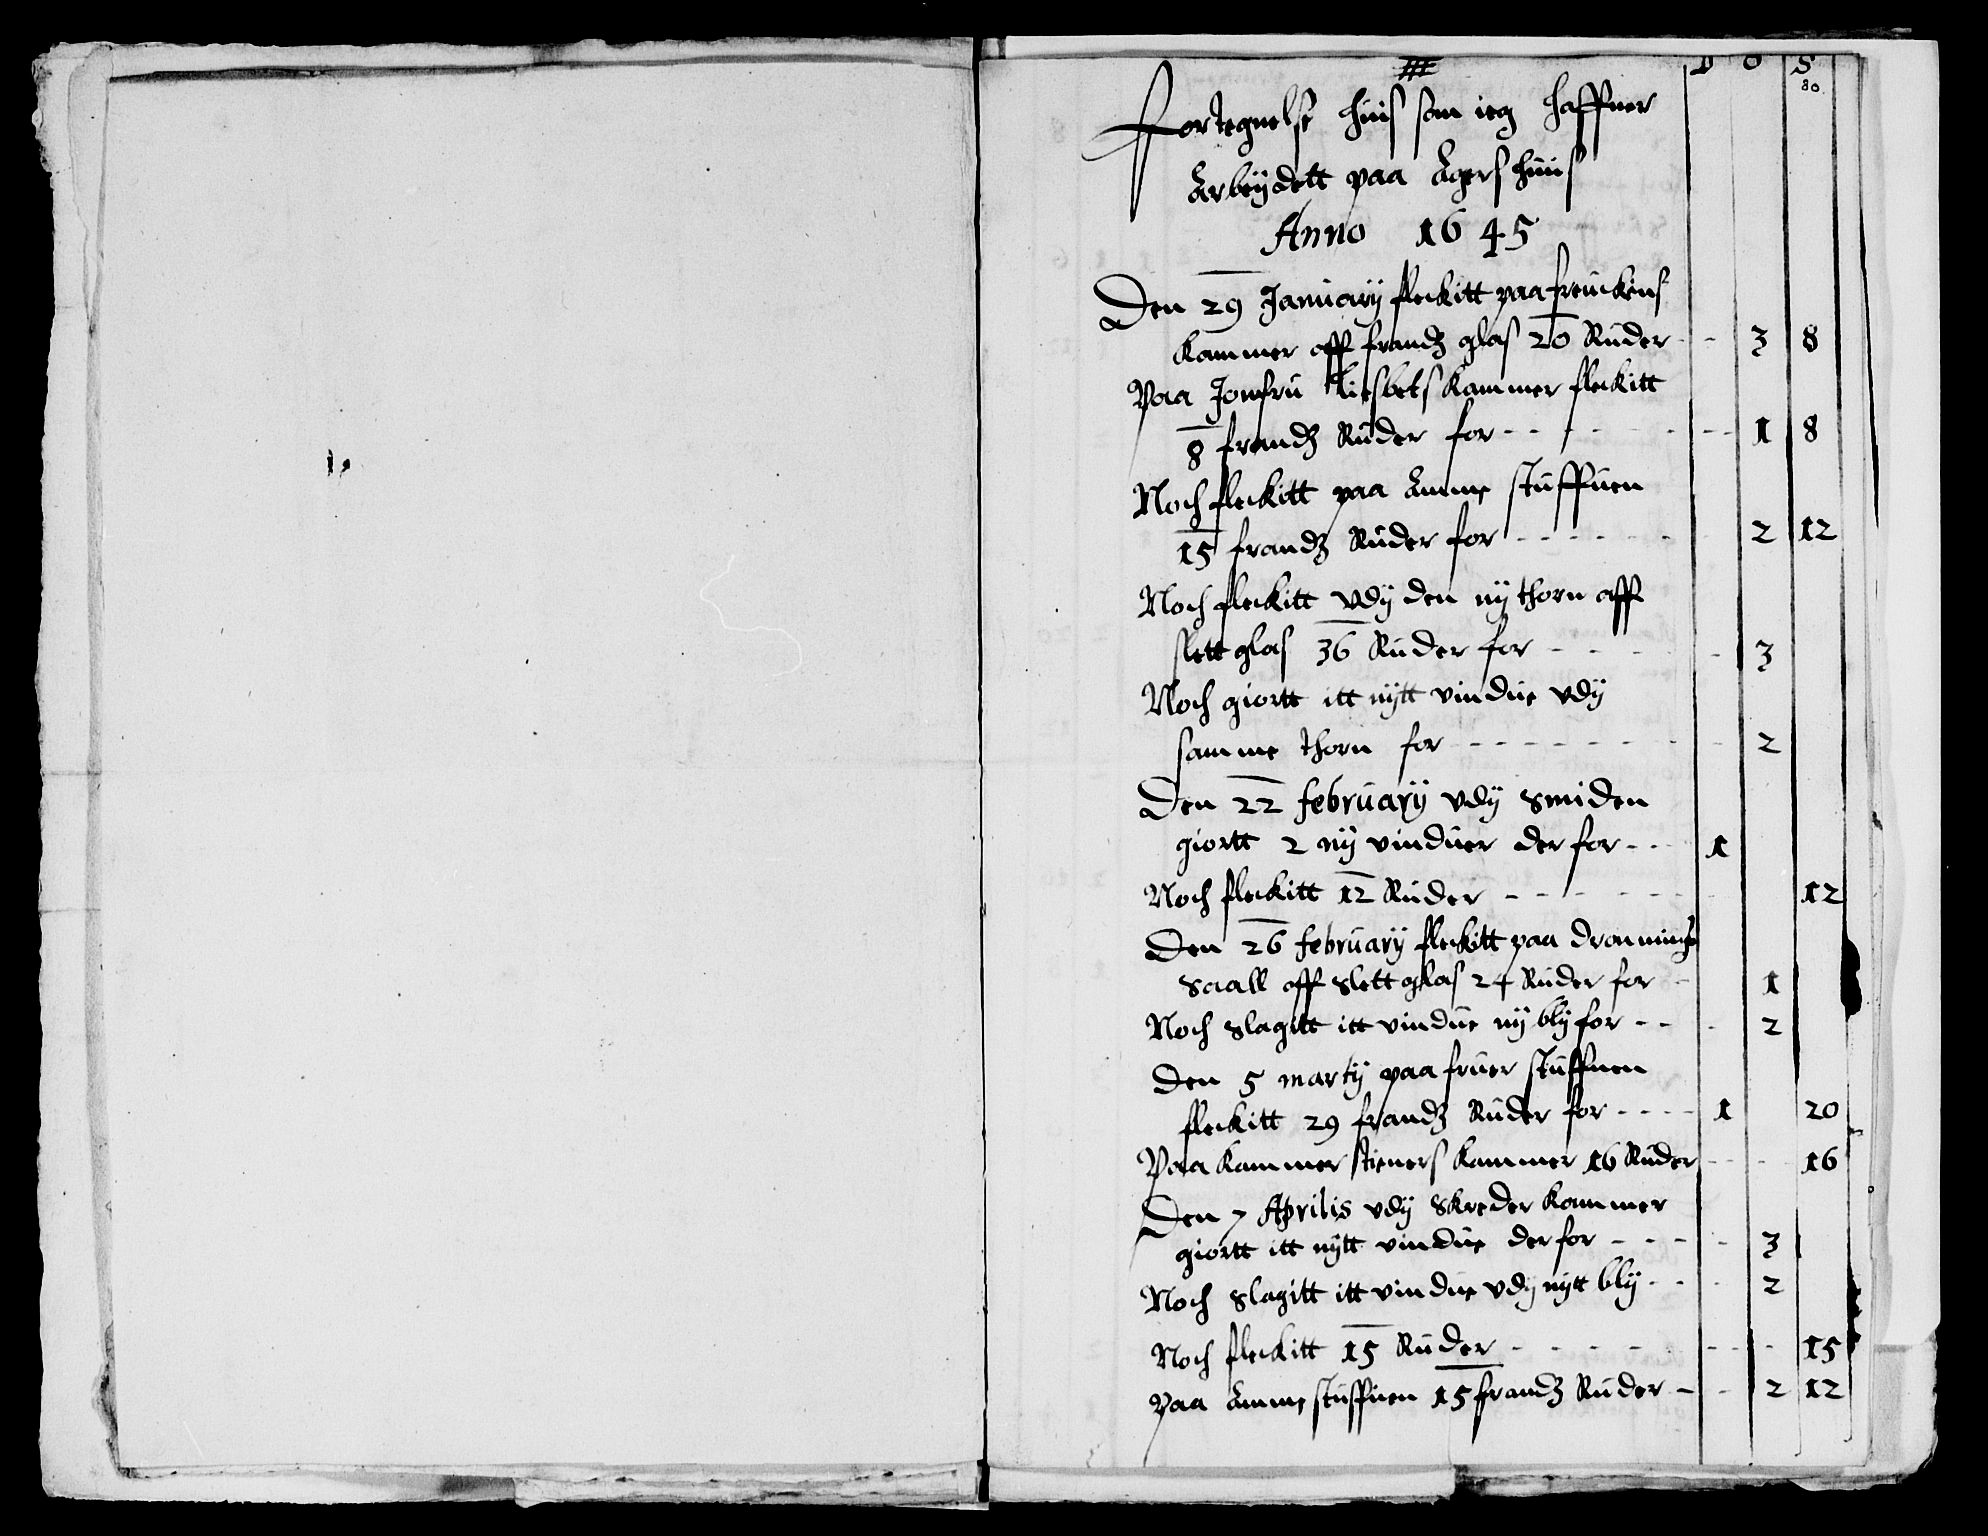 D O S
80
Fortegnelse huis som ieg haffuer
Arbeydett paa Agershuus
Anno 1645
Den 29 January fleckitt paa freuckens
kammer aff frandz glas 20 Ruder - - 3 8
Paa Jomfru Liesbets kammer fleckitt
8 frandz Ruder for - - - - - 1 8
Noch fleckitt paa Amme stuffuen
15 frandz Ruder for - - - - - 2 12
Noch fleckitt vdy den ny thorn aff
slett glas 36 Ruder for - - - - 3
Noch giortt itt nytt vindue vdy
samme thorn for - - - - - - 2
Den 22 february vdy Smiden
giortt 2 ny vinduer der for - - 1
Noch fleckitt 12 Ruder - - - - - 12
Den 26 february fleckitt paa dronnings
Saall aff Slett glas 24 Ruder for - 1
Noch Slagitt itt vindue ny bly for - - - 2
Den 5 marty paa fruer stuffuen
fleckitt 29 frandz Ruder for - - - - 1 20
Paa kammer tieners kammer 16 Ruder - - - 16
Den 7 Aprilis vdy Skreder kammer
giortt itt nytt vindue der for - - - - 3
Noch Slagitt itt vindue vdy nytt bly - - - 2
Noch fleckitt 15 Ruder - - - - - - - 15
Paa Amme stuffuen 15 frandz Ruder - - 2 12